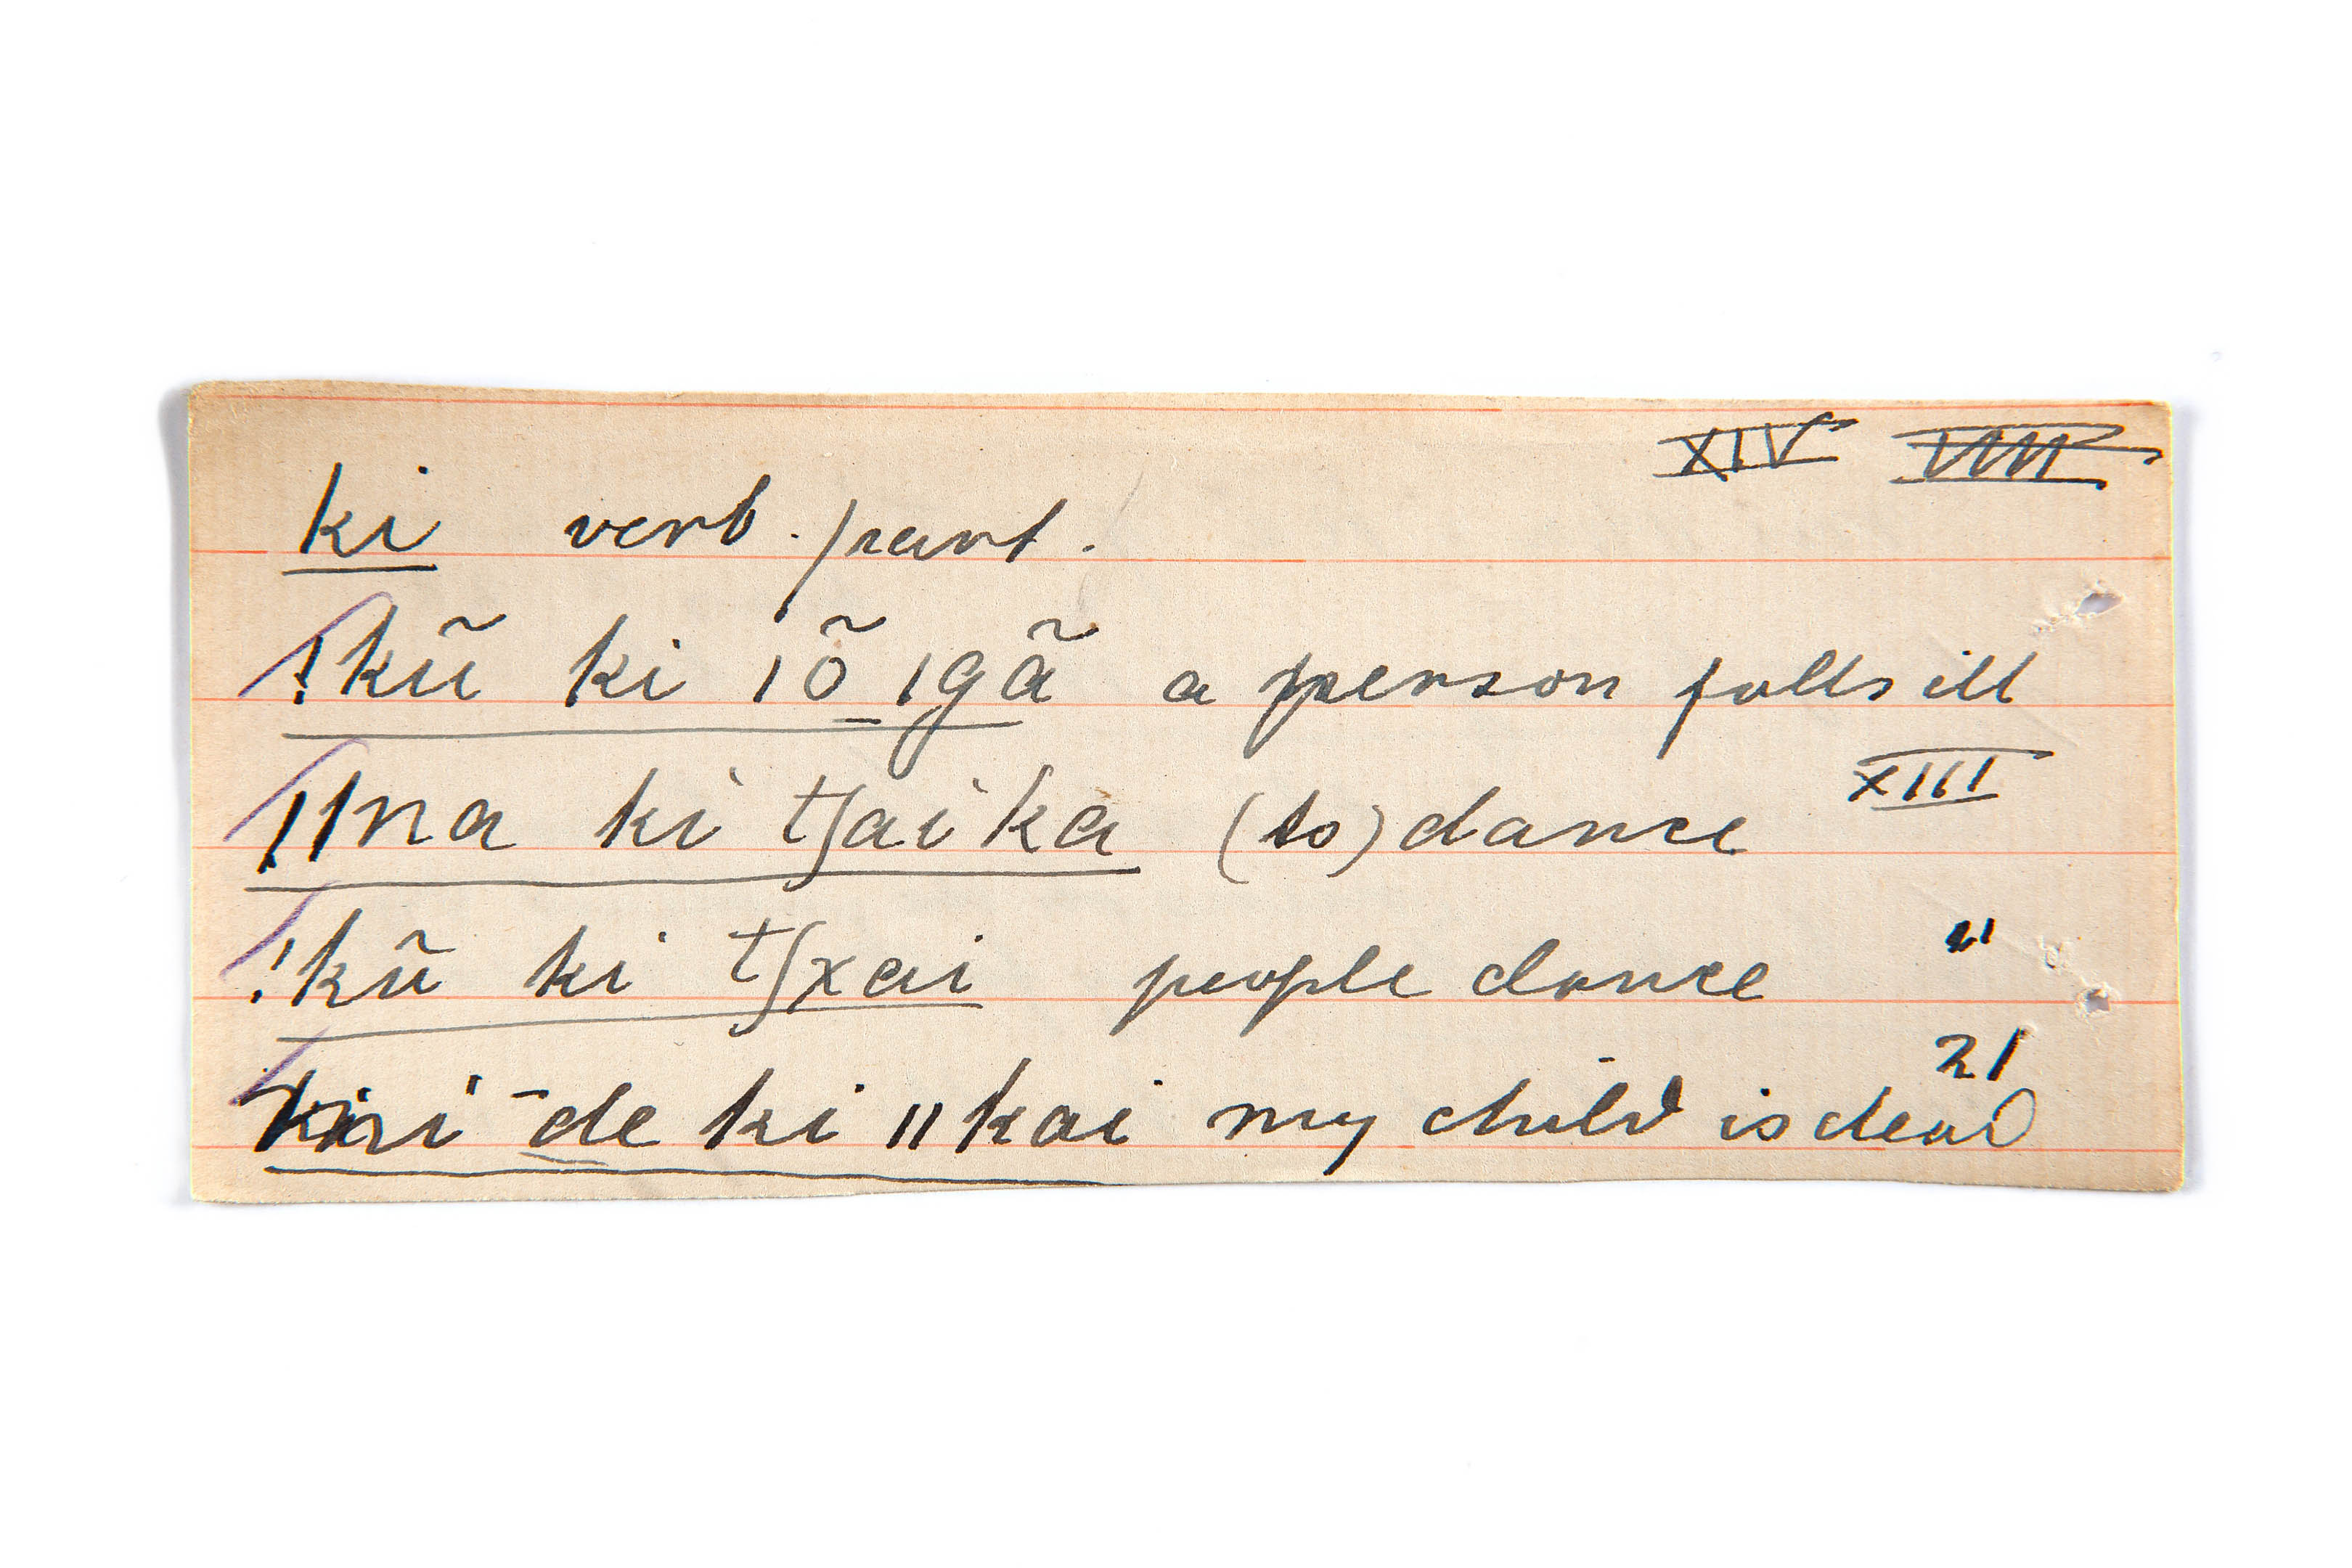 XIV
ki verb. part.
!kũ ki ǀõ ǀgã a person falls ill
ǁna ki tʃaika (to) dance XIII
!kũ ki tʃxai people dance "
21
de ki ǁkai my child is dead